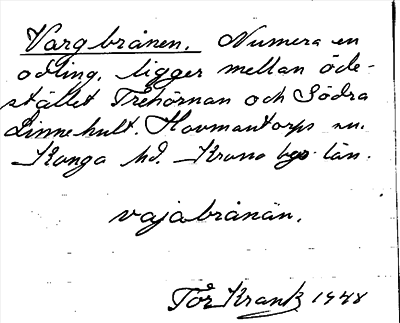 Vargbrånen. Numera en
odling, ligger mellan öde-
stället Trehörnan och Södra
Linnehult. Hovmantorps sn.
Konga hd. Kronobergs län.
vajabrånän.
Tor Krank 1948